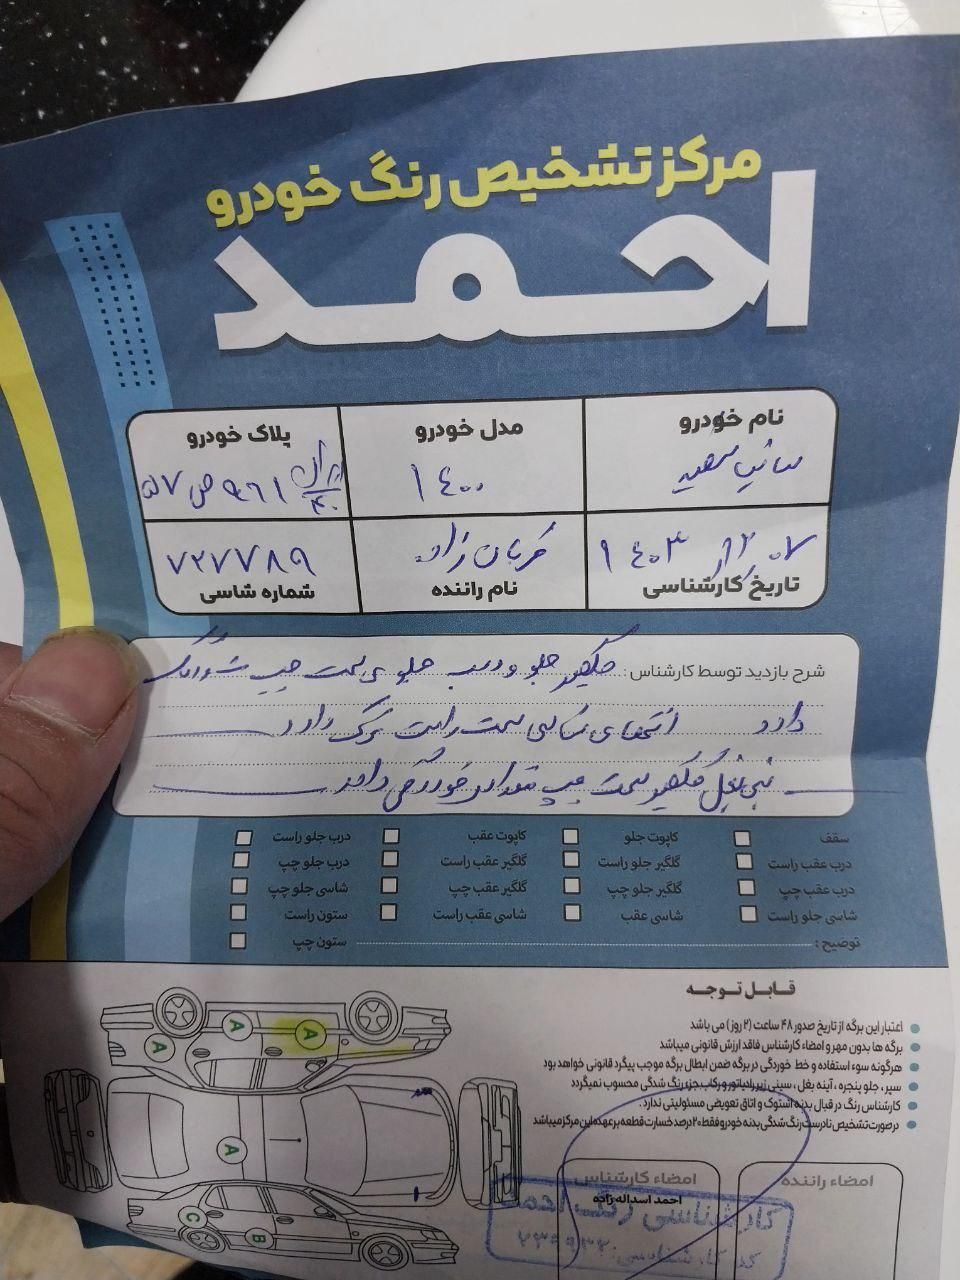 مرکز تشخیص رنگ خودرو
احمد
نام خودرو
مدل خودرو
پلاک خودرو
ساینا سفید
۱۴۰۰
۵۷ ص ۹۶۱ ایران ۴۰
۱۴۰۳/۱۲/۰۷
قربان زاده
۷۲۷۷۸۹
تاریخ کارشناسی
نام راننده
شماره شاسی
شرح بازدید توسط کارشناس: گلگیر جلو و درب جلوی سمت چپ
دارد انتهای شاسی سمت راست ترک دارد
گلگیر سمت چپ مقداری خوردگی دارد
سقف
کاپوت جلو
کاپوت عقب
درب جلو راست
درب عقب راست
گلگیر جلو راست
گلگیر عقب راست
درب جلو چپ
درب عقب چپ
گلگیر جلو چپ
گلگیر عقب چپ
شاسی جلو چپ
شاسی جلو راست
شاسی عقب
شاسی عقب راست
ستون راست
توضیح:
ستون چپ
قابل توجه
اعتبار این برگه از تاریخ صدور ۴۸ ساعت (۲ روز) می باشد
برگه ها بدون مهر و امضاء کارشناس فاقد ارزش قانونی میباشد
هرگونه سوء استفاده و خط خوردگی در برگه ضمن ابطال برگه موجب پیگرد قانونی خواهد بود
سپر، جلو پنجره، آینه بغل، سینی زیر رادیاتور و رکاب جزء رنگ شدگی محسوب نمیگردد
کارشناس رنگ در قبال بدنه استوک و اتاق تعویضی مسئولیتی ندارد.
درصورت تشخیص نادرست رنگ شدگی بدنه خودرو فقط ۲۰ درصد خسارت قطعه بر عهده این مرکز میباشد
امضاء راننده
امضاء کارشناس
احمد اسداله زاده
کارشناسی رنگ احمد
کد کارشناسی:
A
A
A
A
B
C